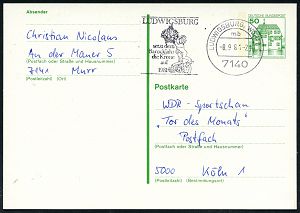 Absender
Christian Nicolaus
An der Mauer 5
(Straße und Hausnummer)
7141 Murr
(Postleitzahl) (Ort)
LUDWIGSBURG
setzt dem
Barock
die Krone
auf
LUDWIGSBURG
mb
-8.9.81-
7140
DEUTSCHE BUNDESPOST
50
Postkarte
WDR - Sportschau
"Tor des Monats"
Postfach
(Postfach oder Straße und Hausnummer)
5000 Köln 1
(Postleitzahl) (Bestimmungsort)